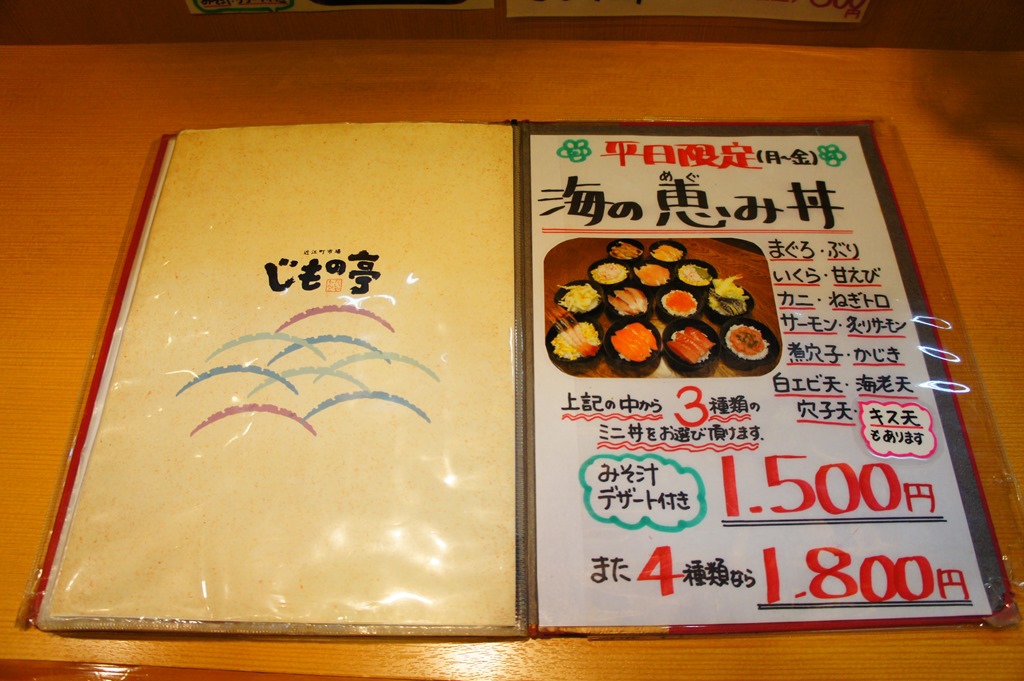 近江町市場
じもの亭
平日限定(月~金)
めぐ
海の恵み丼
まぐろ・ぶり
いくら・甘えび
カニ・ねぎトロ
サーモン・炙りサーモン
煮穴子・かじき
白エビ天・海老天
穴子天・
キス天
もあります
上記の中から3種類の
ミニ丼をお選び頂けます.
みそ汁
デザート付き
1.500円
また4種類なら
1.800円